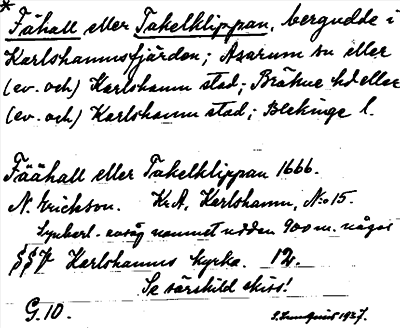 * Fähall eller Takelklippan, bergudde i
Karlshamnsfjärden; Asarum sn eller
(ev. och) Karlshamn stad; Bräkne hd eller
(ev. och) Karlshamn stad; Blekinge l.
Fäähall eller Takelklippan 1666.
N. Erickson. Kr.A. Karlshamn, N:o 15.
avsåg namnet udden 900 m. något
Karlshamns kyrka. 12.
Se särskild skiss!
G.10. 1927.